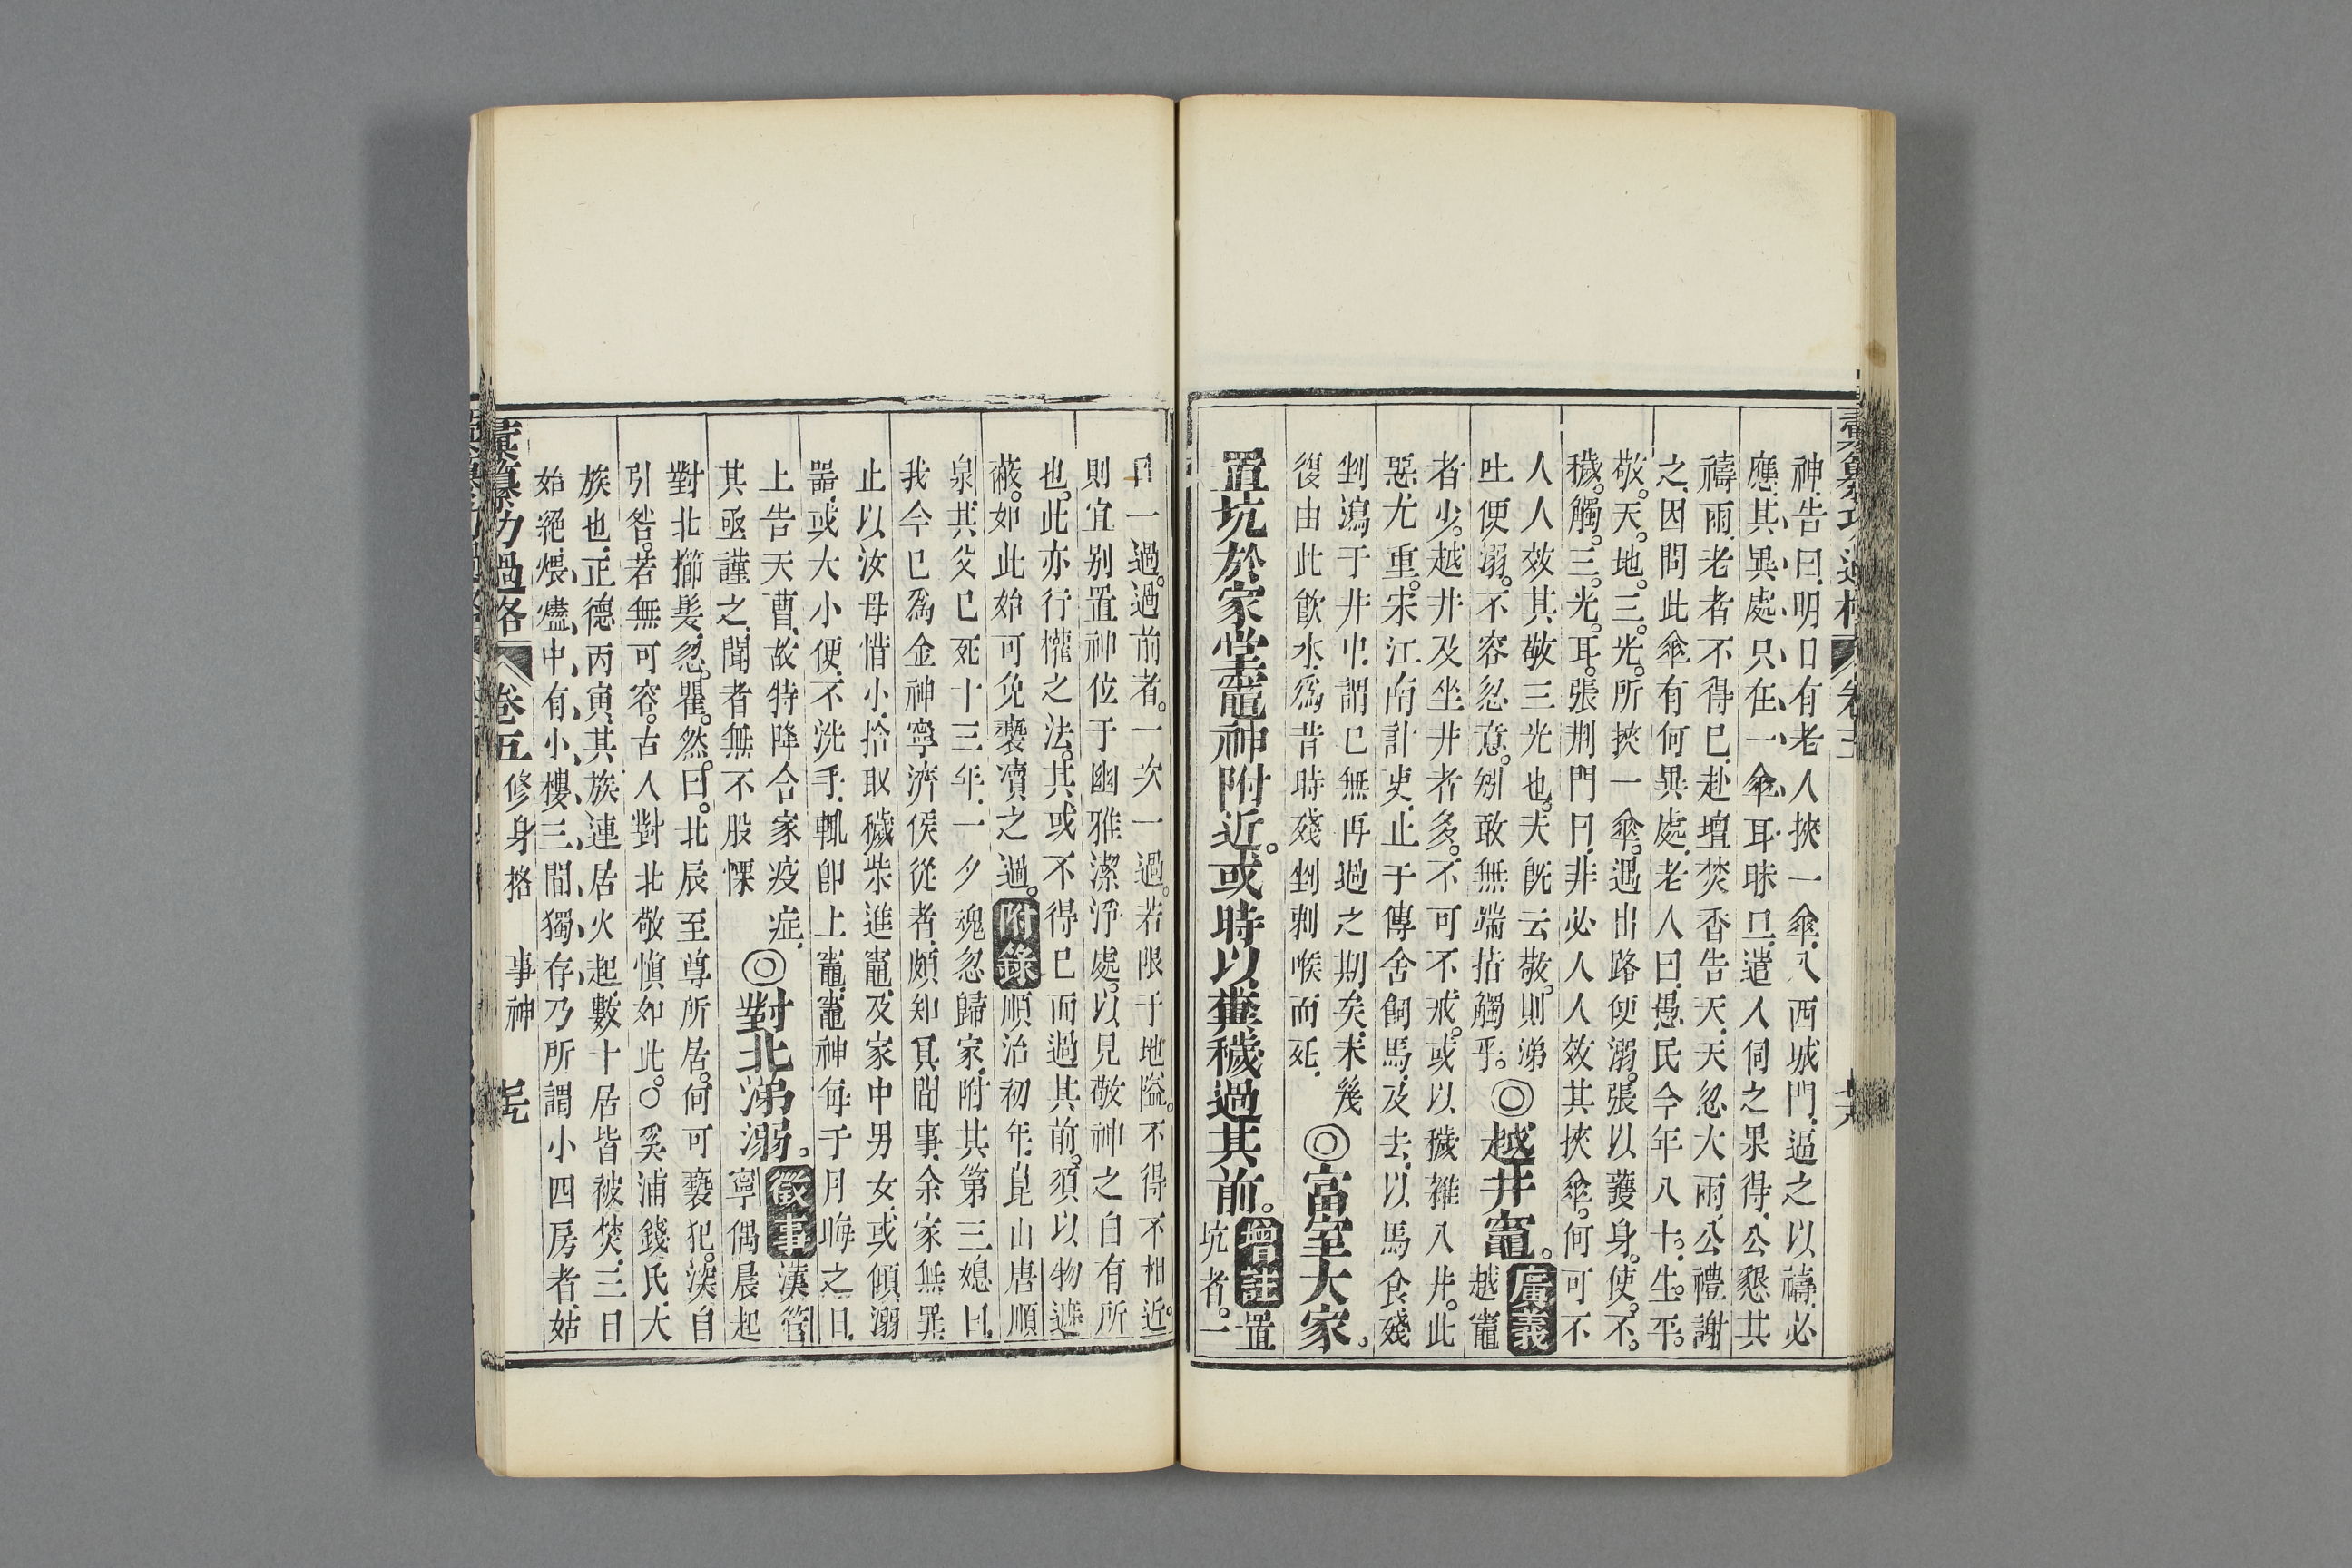 彙纂功過格 卷五
神告曰明日有老人挾一傘入西城門逼之以禱必
應其異處只在一傘耳昧旦遣人伺之果得公懇其
禱雨老者不得已赴壇焚香告天天忽大雨公禮謝
之因問此傘有何異處老人曰愚民今年八十生平
敬天地三光所挾一傘遇出路便溺張以護身使不
穢觸三光耳張荆門曰非必人人效其挾傘何可不
人人效其敬三光也夫既云敬則涕
吐便溺不容忽意矧敢無端指觸乎◎越井竈廣義越竈
者少越井及坐井者多不可不戒或以穢雜入井此
惡尤重宋江南計吏止于傳舍飼馬及去以馬食殘
剉瀉于井中謂已無再過之期矣未幾
復由此飲水爲昔時殘剉刺喉而死◎富室大家
置坑於家堂竈神附近或時以糞穢過其前增註置坑者一
日一過過前者一次一過若限于地隘不得不相近
則宜别置神位于幽雅潔淨處以見敬神之自有所
也此亦行權之法其或不得已而過其前須以物遮
蔽如此始可免褻瀆之過附錄順治初年崑山唐順
泉其父已死十三年一夕魂忽歸家附其第三媳曰
我今已爲金神寧濟侯從者頗知冥間事余家無罪
止以汝母惜小拾取穢柴進竈及家中男女或傾溺
器或大小便不洗手輒卽上竈竈神每于月晦之日
上告天曹故特降合家疫症
其亟謹之聞者無不股慄◎對北涕溺徵事漢管寧偶晨起
對北櫛髮忽瞿然曰北辰至尊所居何可褻犯深自
引咎若無可容古人對北敬慎如此○奚浦錢氏大
族也正德丙寅其族連居火起數十居皆被焚三日
始絕煨燼中有小樓三間獨存乃所謂小四房者姑
彙纂功過格 卷五 修身格 事神